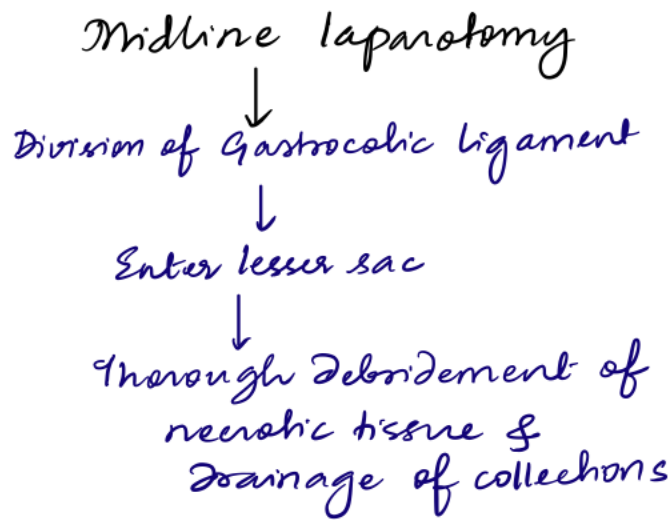 Midline laparotomy
Division of Gastrocolic ligament
Enter lesser sac
Thorough debridement of
necrotic tissue &
drainage of collections